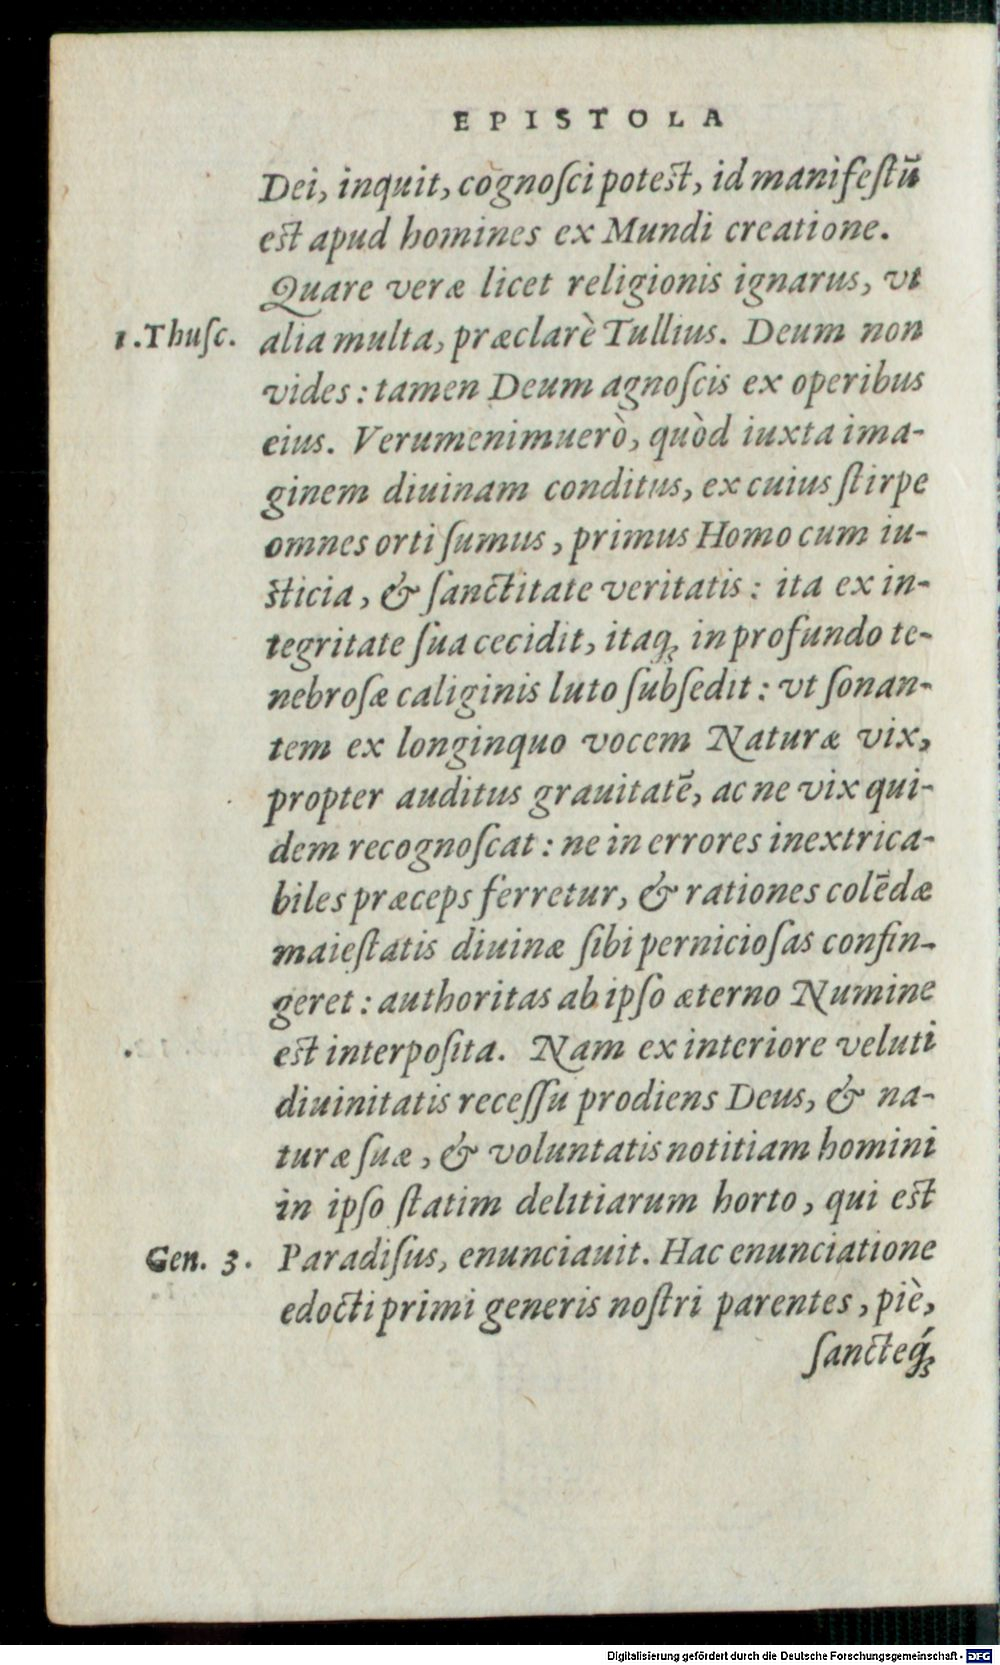 EPISTOLA
Dei, inquit, cognoſci poteſt, id manifeſtū
eſt apud homines ex Mundi creatione.
Quare veræ licet religionis ignarus, vt
1. Thuſc.
alia multa, præclarè Tullius. Deum non
vides: tamen Deum agnoſcis ex operibus
eius. Verumenimuerò, quòd iuxta ima-
ginem diuinam conditus, ex cuius ſtirpe
omnes orti ſumus, primus Homo cum iu-
ſticia, & ſanctitate veritatis: ita ex in-
tegritate ſua cecidit, itaq; in profundo te-
nebroſæ caliginis luto ſubſedit: vt ſonan-
tem ex longinquo vocem Naturæ vix,
propter auditus grauitatē, ac ne vix qui-
dem recognoſcat: ne in errores inextrica-
biles præceps ferretur, & rationes colēdæ
maieſtatis diuinæ ſibi pernicioſas confin-
geret: authoritas ab ipſo æterno Numine
eſt interpoſita. Nam ex interiore veluti
diuinitatis receſſu prodiens Deus, & na-
turæ ſuæ, & voluntatis notitiam homini
in ipſo ſtatim delitiarum horto, qui eſt
Gen. 3.
Paradiſus, enunciauit. Hac enunciatione
edocti primi generis noſtri parentes, piè,
ſancteq́;
Digitalisierung gefördert durch die Deutsche Forschungsgemeinschaft - DFG